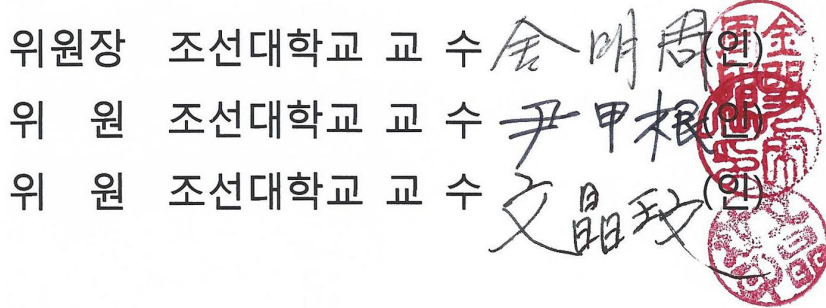 위원장 조선대학교 교 수 金明周 (인)
위 원 조선대학교 교 수 尹甲根 (인)
위 원 조선대학교 교 수 文晶玟 (인)